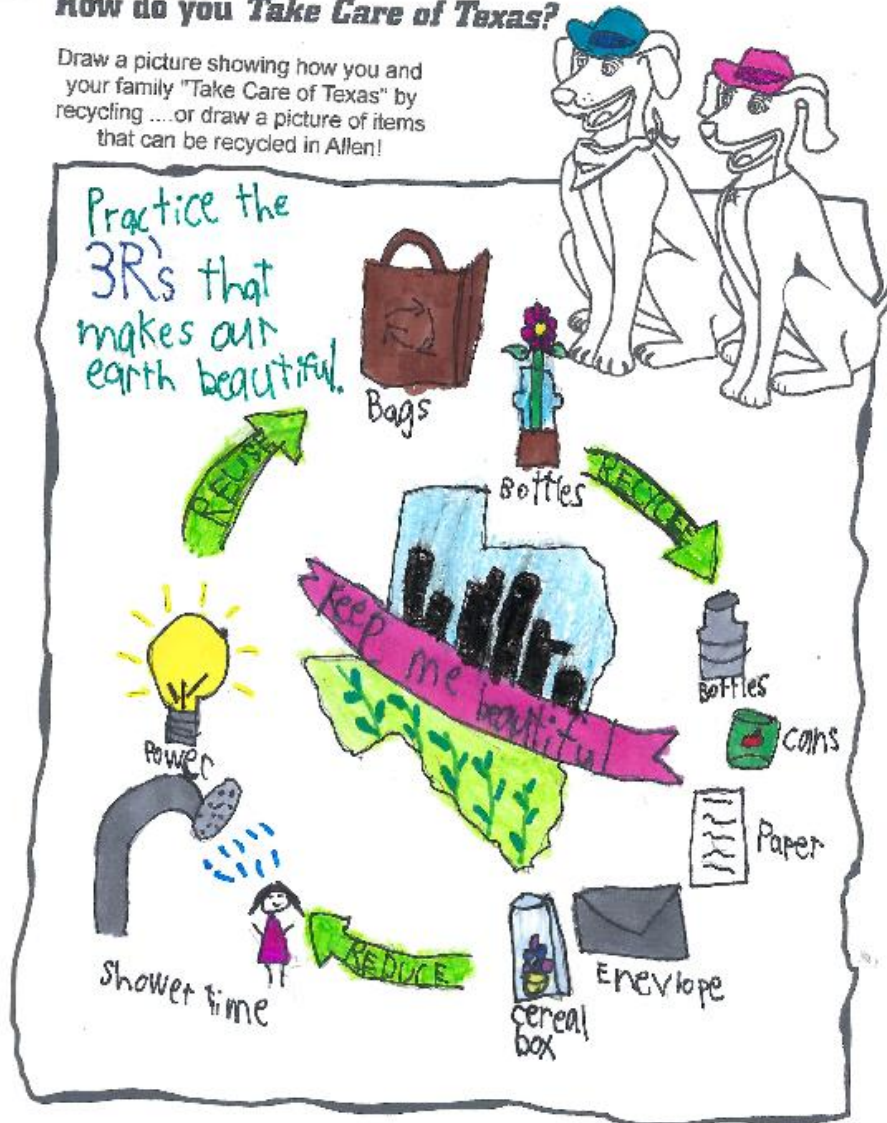 How do you Take Care of Texas?
Draw a picture showing how you and
your family "Take Care of Texas" by
recycling ....or draw a picture of items
that can be recycled in Allen!
Practice the
3R's that
makes our
earth beautiful.
Bags
Bottles
REUSE
RECYCLE
keep me beautiful
Power
Bottles
cans
Paper
Enevlope
cereal
box
REDUCE
Shower time